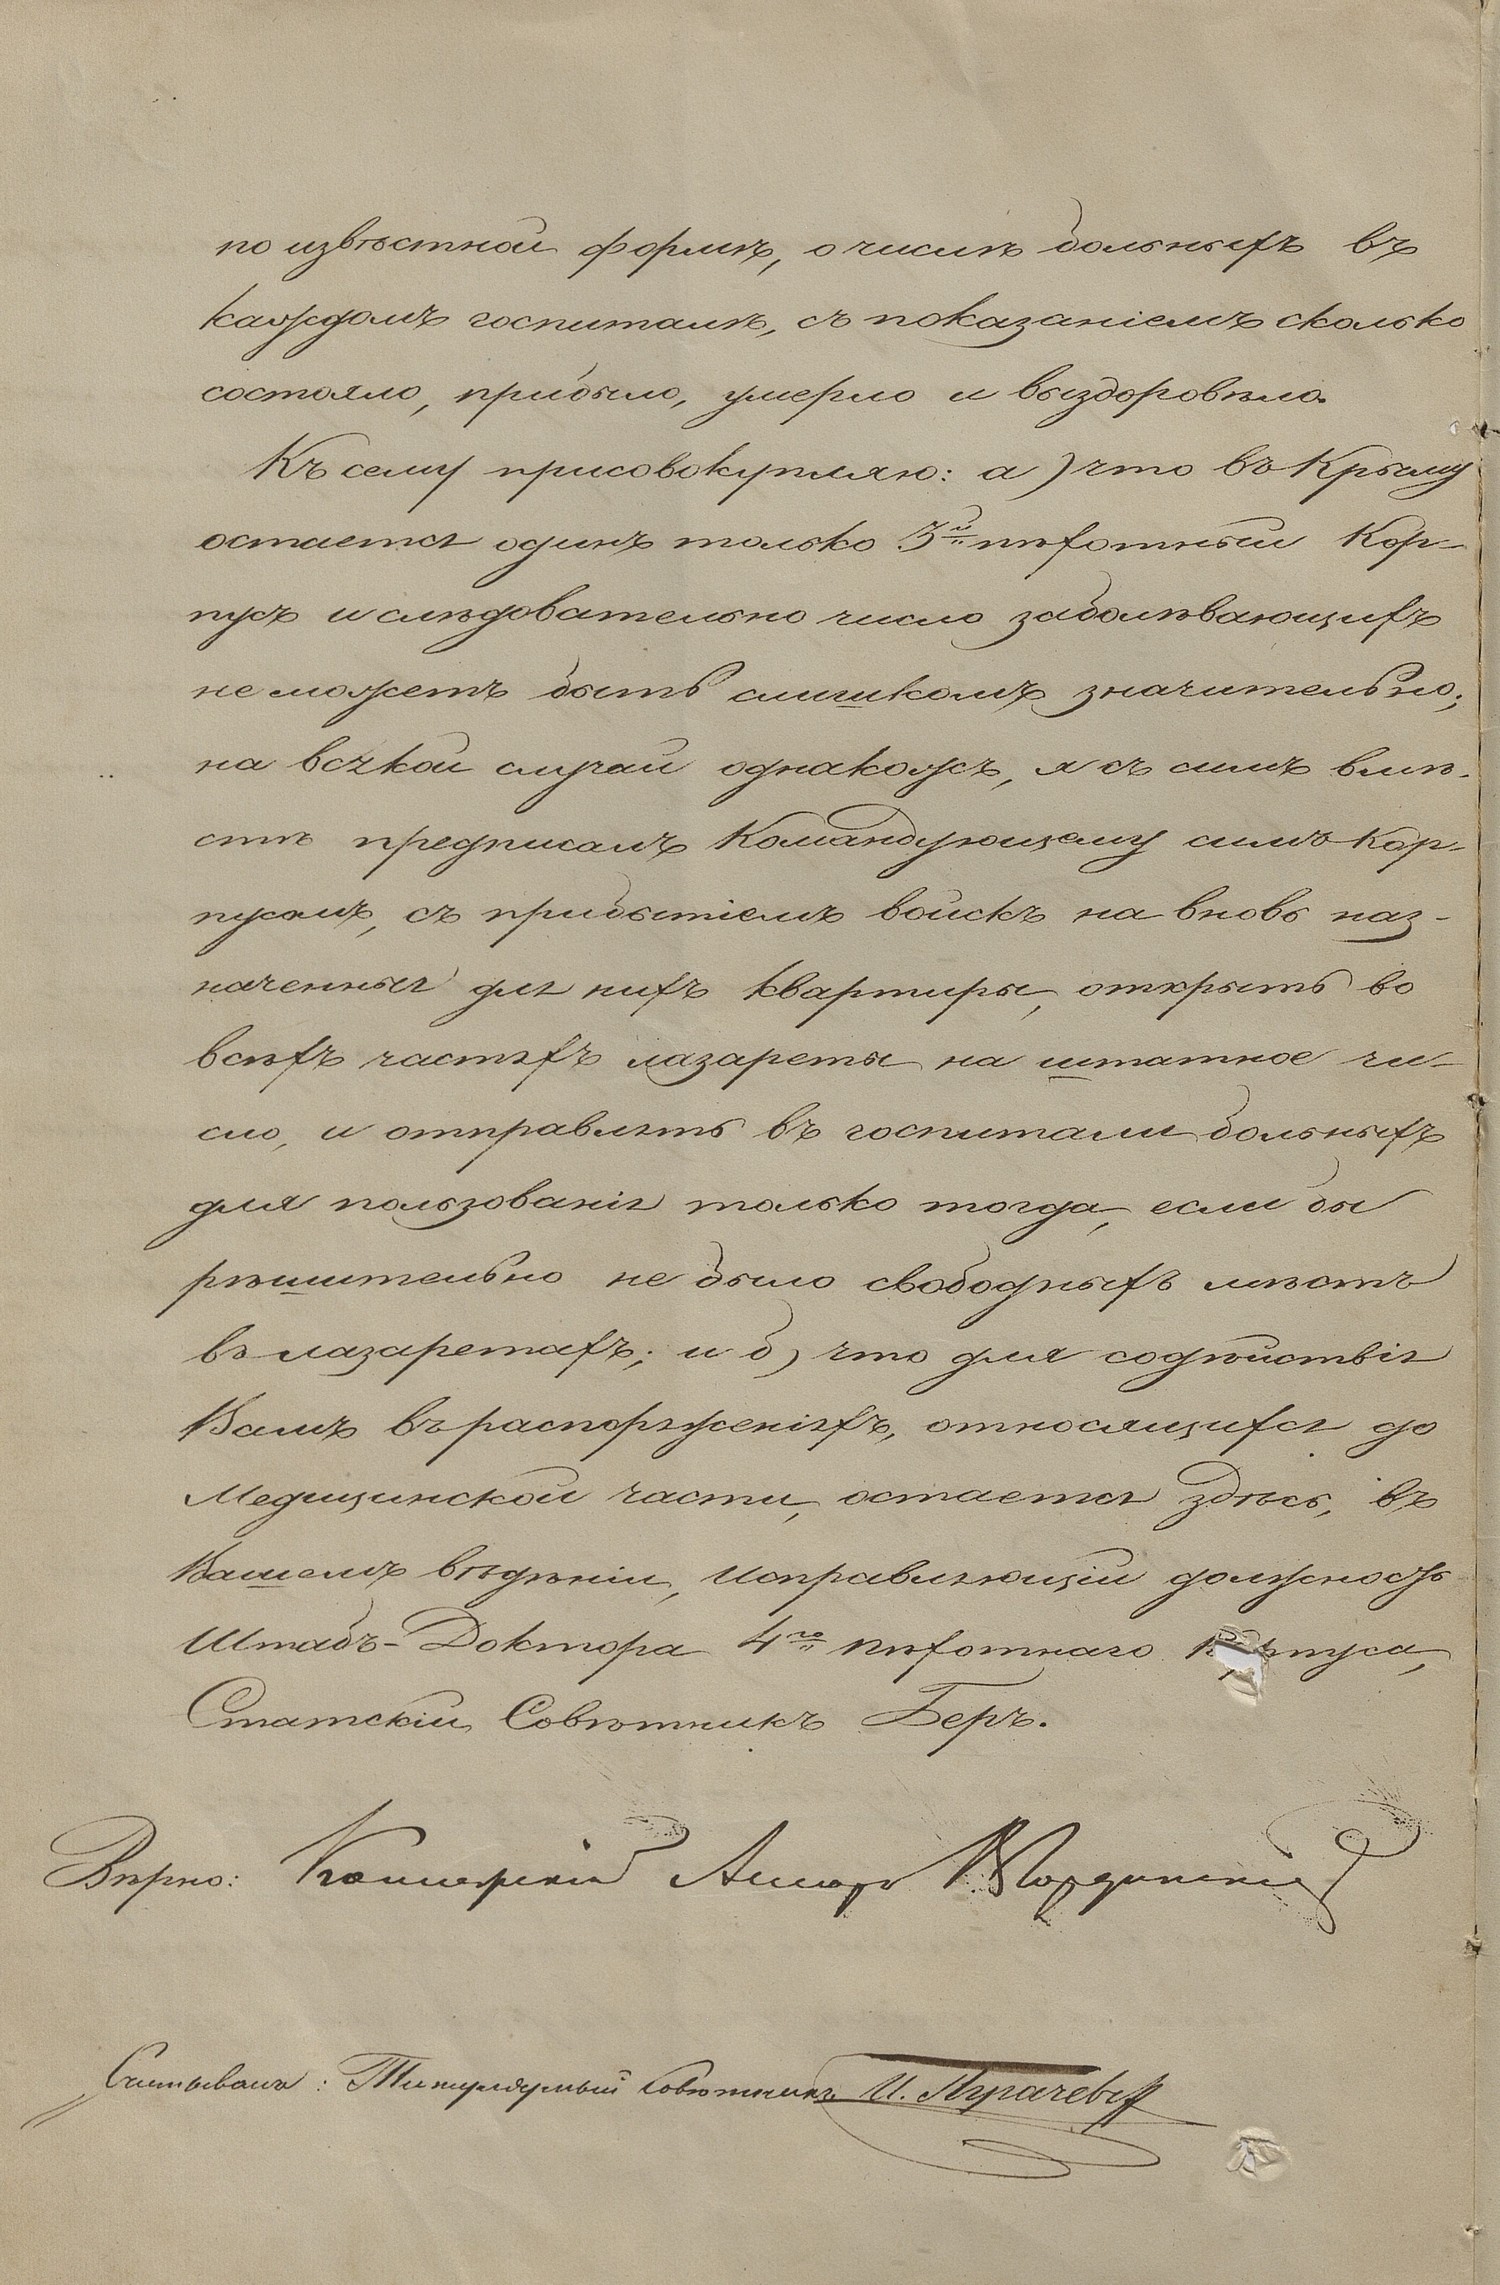 по извѣстной формѣ, о числѣ больныхъ въ
каждомъ госпиталѣ, съ показаніемъ сколько
состояло, прибыло, умерло и выздоровѣло.
Къ сему присовокупляю: а) что въ Крыму
остается одинъ только 3й пѣхотный Кор-
пусъ и слѣдовательно число заболѣвающихъ
не можетъ быть слишкомъ значительно;
на всякой случай однакожъ, я съ симъ вмѣ-
стѣ предписалъ Командующему симъ Кор-
пусомъ, съ прибытіемъ войскъ на вновь наз-
наченныя для нихъ квартиры, открыть во
всѣхъ частяхъ лазареты на штатное чи-
сло, и отправлять въ госпитали больныхъ
для пользованія только тогда, если бы
рѣшительно не было свободныхъ мѣстъ
въ лазаретахъ; и б) что для содѣйствія
Вамъ въ распоряженіяхъ, относящихся до
Медицинской части, остается здѣсь, въ
Вашемъ вѣдѣніи, Исправляющій должность
Штабъ-Доктора 4го пѣхотнаго Корпуса,
Статскій Совѣтникъ Беръ.
Вѣрно:
Считывалъ: Титулярный Совѣтникъ И. Пугачевъ